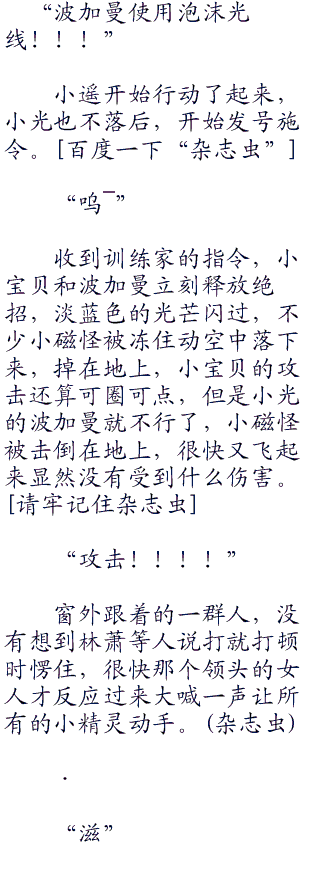 “波加曼使用泡沫光
线！！！”
小遥开始行动了起来，
小光也不落后，开始发号施
令。[百度一下“杂志虫”]
“呜¯”
收到训练家的指令，小
宝贝和波加曼立刻释放绝
招，淡蓝色的光芒闪过，不
少小磁怪被冻住动空中落下
来，掉在地上，小宝贝的攻
击还算可圈可点，但是小光
的波加曼就不行了，小磁怪
被击倒在地上，很快又飞起
来显然没有受到什么伤害。
[请牢记住杂志虫]
“攻击！！！！”
窗外跟着的一群人，没
有想到林萧等人说打就打顿
时愣住，很快那个领头的女
人才反应过来大喊一声让所
有的小精灵动手。(杂志虫)
.
“滋”